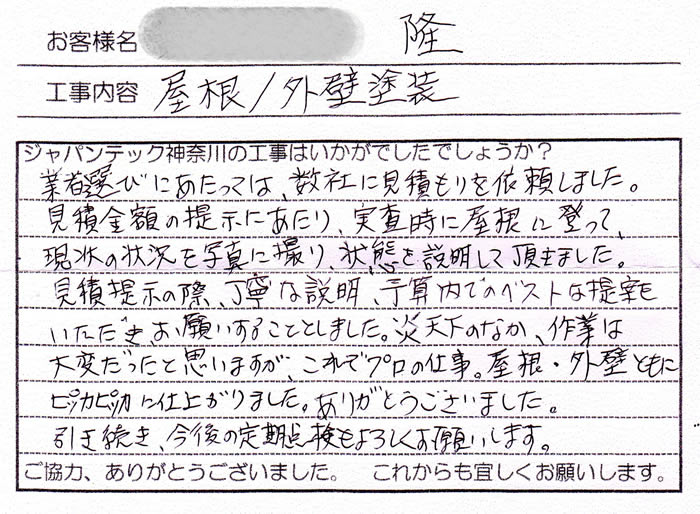 お客様名 隆
工事内容 屋根/外壁塗装
ジャパンテック神奈川の工事はいかがでしたでしょうか？
業者選びにあたっては、数社に見積もりを依頼しました。
見積金額の提示にあたり、実査時に屋根に登って、
現状の状況を写真に撮り、状態を説明して頂きました。
見積提示の際、丁寧な説明、予算内でのベストな提案を
いただき、お願いすることとしました。炎天下のなか、作業は
大変だったと思いますが、これぞプロの仕事。屋根・外壁ともに
ピッカピッカに仕上がりました。ありがとうございました。
引き続き、今後の定期点検もよろしくお願いします。
ご協力、ありがとうございました。 これからも宜しくお願いします。